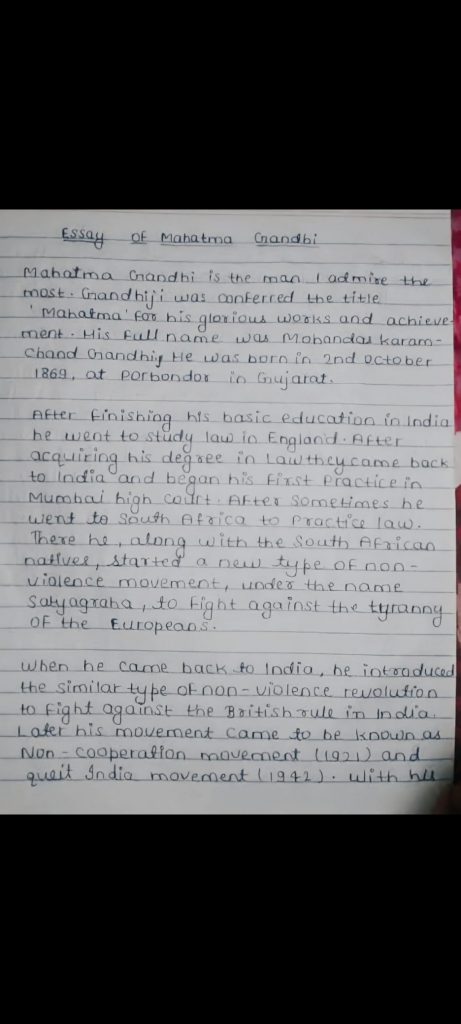 Essay of Mahatma Gandhi
Mahatma Gandhi is the man I admire the
most. Gandhiji was conferred the title
'Mahatma' for his glorious works and achieve-
ment. His full name was Mohandas karam-
chand Gandhi, He was born in 2nd october
1869, at porbondor in Gujarat.
After finishing his basic education in India
he went to study law in England. After
acquiring his degree in Law they came back
to India and began his first Practice in
Mumbai high court. After sometimes he
went to South Africa to Practice law.
There he, along with the South African
natives, started a new type of non-
violence movement, under the name
Satyagraha, to fight against the tyranny
of the Europeans.
when he came back to India, he introduced
the similar type of non-violence revolution
to fight against the British rule in India.
Later his movement came to be known as
Non-cooperation movement (1921) and
queit India movement (1942). with his